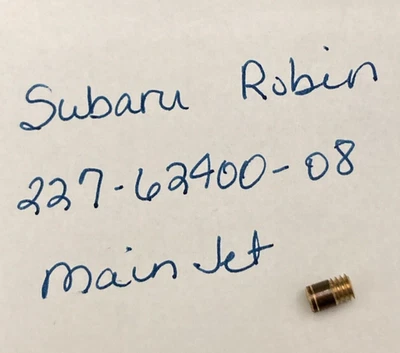 Subaru Robin
227-62400-08
Main Jet